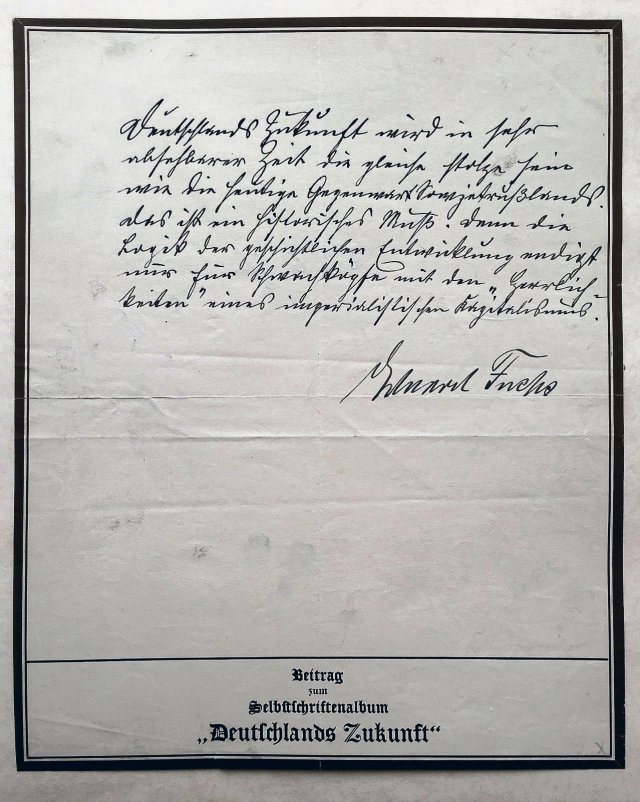 Deutschlands Zukunft wird in sehr
absehbarer Zeit die gleiche stolze sein
wie die heutige Gegenwart Sowjetrußlands.
Das ist ein historisches Muß. Denn die
Logik der geschichtlichen Entwicklung endigt
nur für Schwachköpfe mit den „Herrlich-
keiten“ eines imperialistischen Kapitalismus.
Eduard Fuchs
Beitrag
zum
Selbstschriftenalbum
„Deutschlands Zukunft“